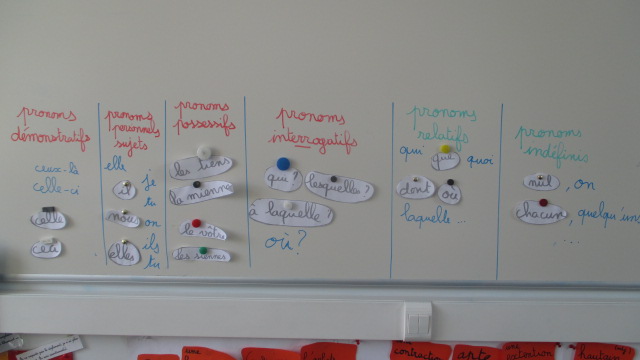 pronoms
démonstratifs
ceux-là
celle-ci
celle
pronoms
personnels
sujets
elle
je
tu
nous
on
ils
elles
tu
pronoms
possessifs
les tiens
la mienne
le vôtre
les siennes
pronoms
interrogatifs
qui ?
lesquelles ?
à laquelle ?
où ?
pronoms
relatifs
qui que quoi
dont où
laquelle ...
pronoms
indéfinis
nul, on
chacun, quelqu'un
, ...
contraction